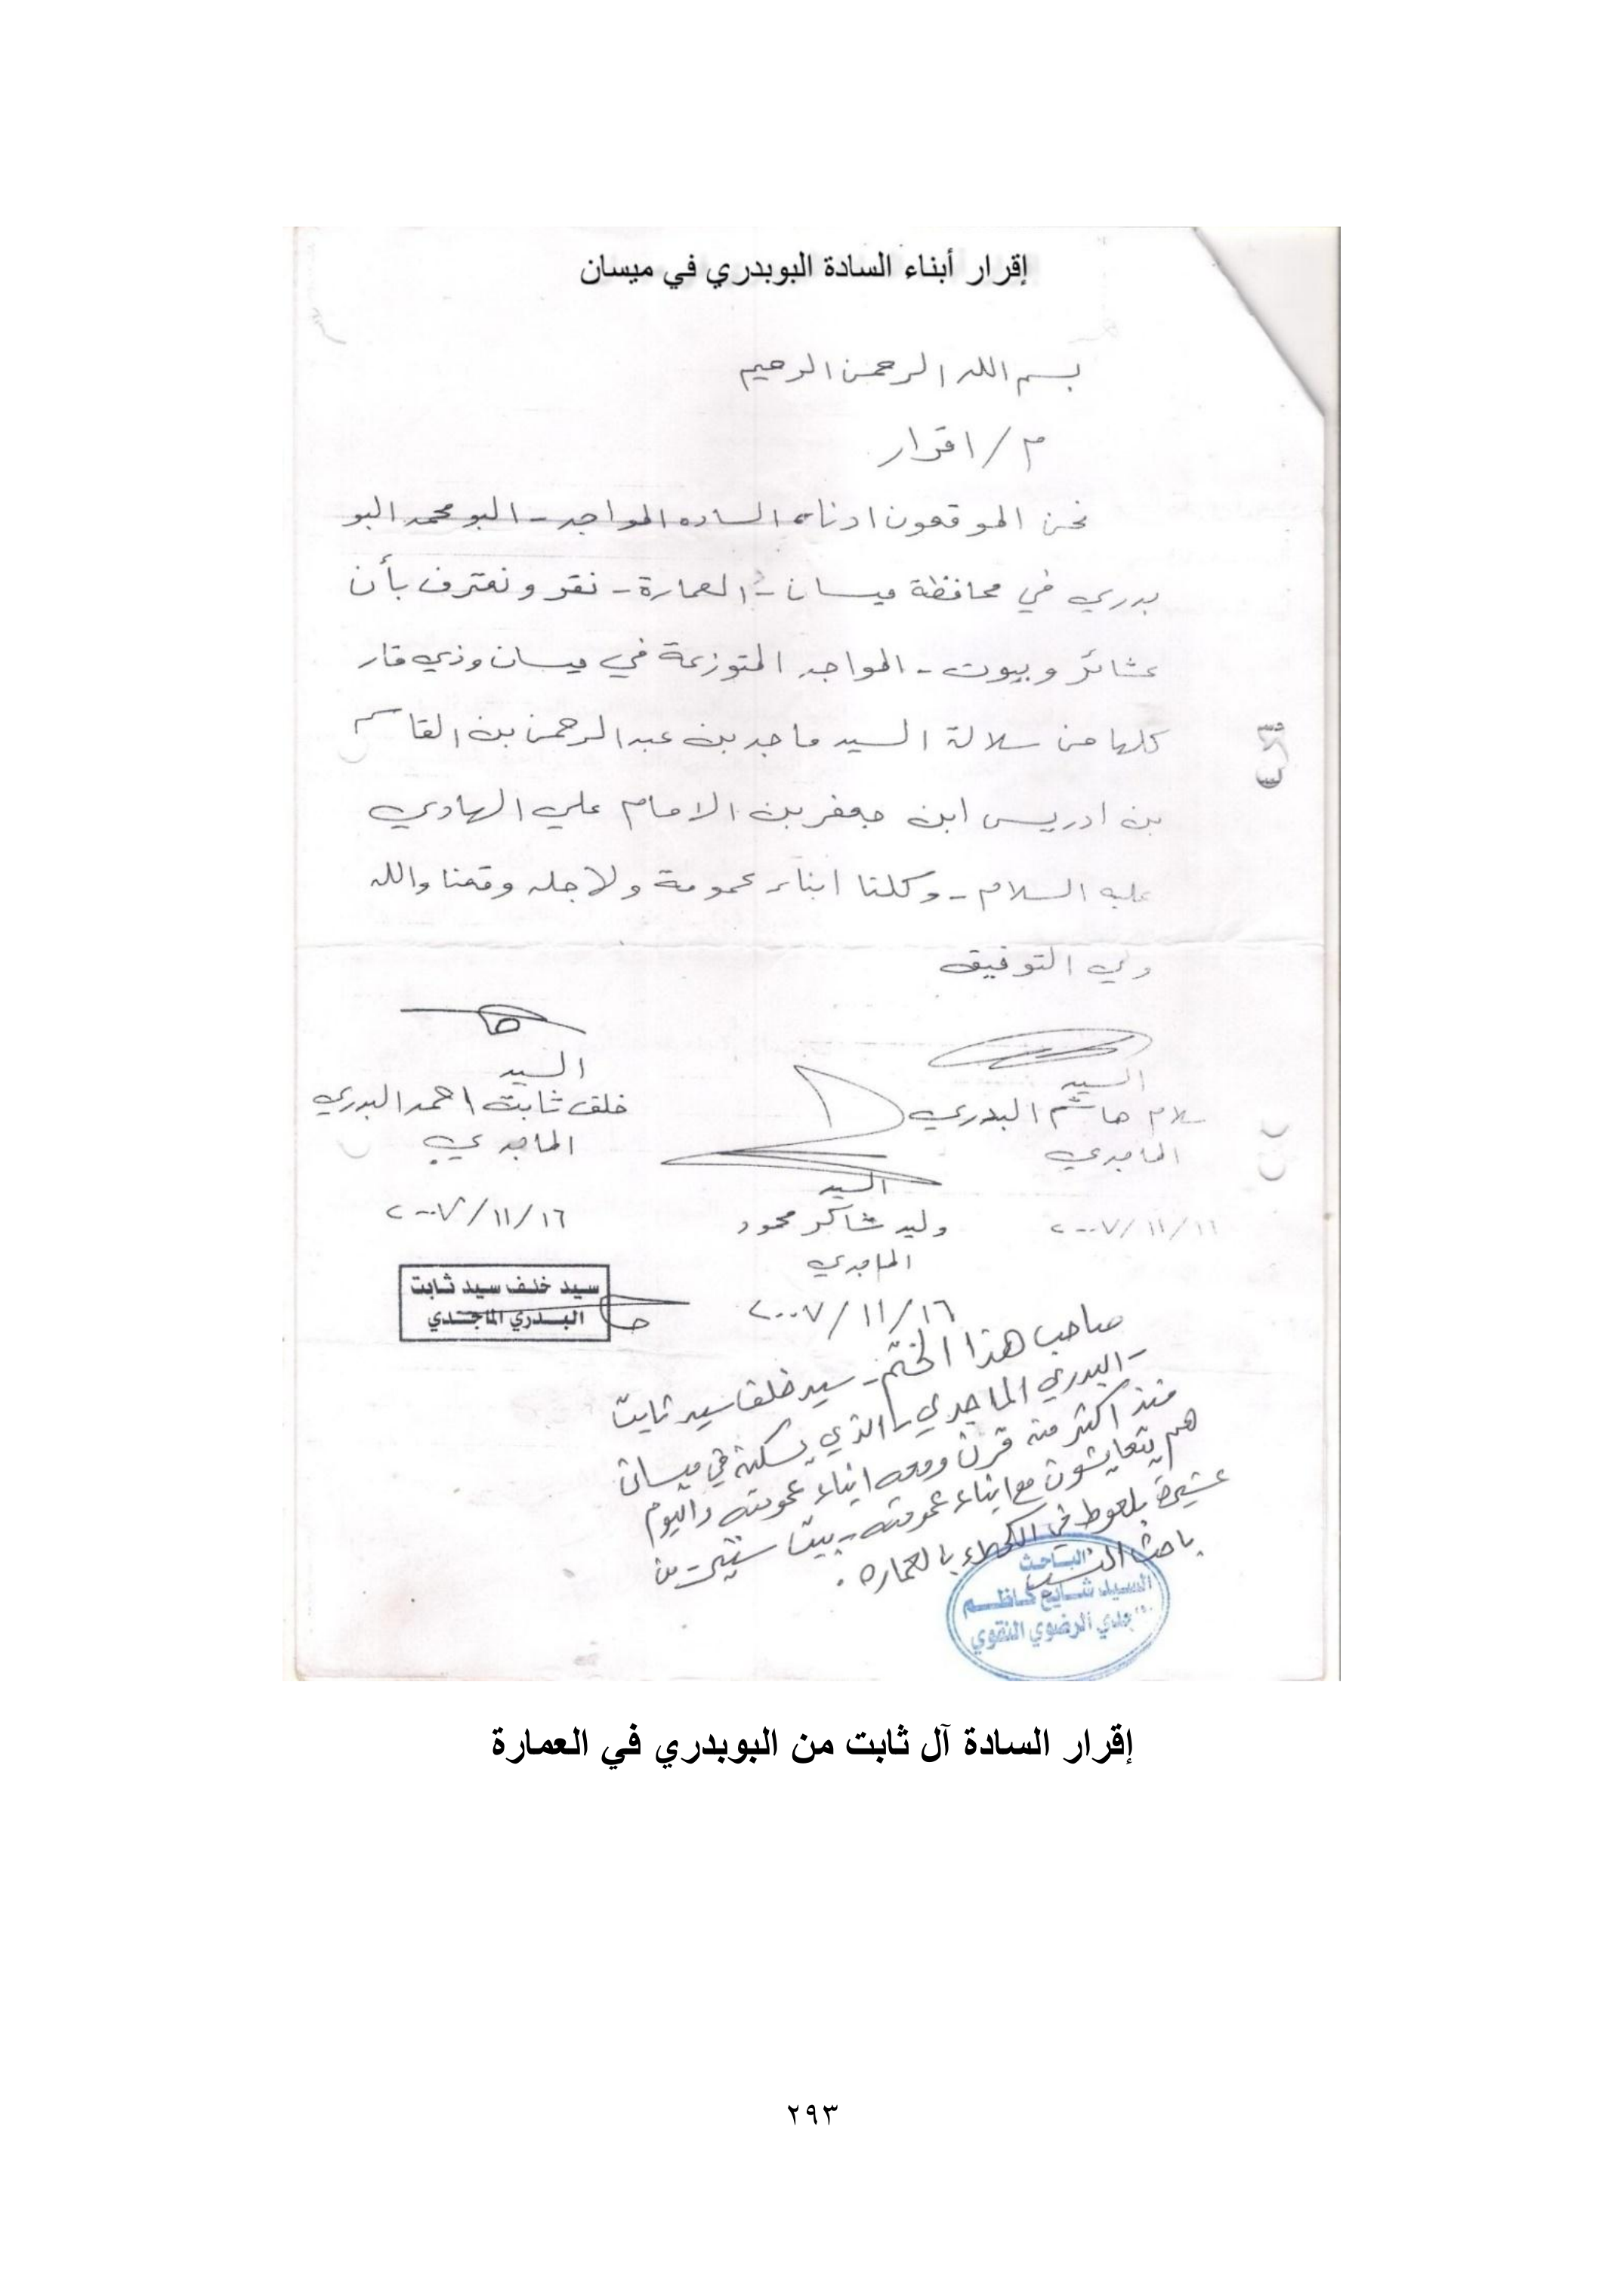 إقرار أبناء السادة البوبدري في ميسان
بسم الله الرحمن الرحيم
م / اقرار
نحن الموقعون ادناه السادة المواجد - البو محمد البو
بدري في محافظة ميسان - العمارة - نقر ونعترف بأن
عشائر وبيوت - المواجد المتوزعة في ميسان وذي قار
كلها من سلالة السيد ماجد بن عبد الرحمن بن القاسم
بن ادريس ابن جعفر بن الامام علي الهادي
عليه السلام - وكلنا ابناء عمومة ولاجله وقعنا والله
ولي التوفيق
السيد
سلام هاشم البدري
الماجدي
٢٠٠٧/١١/١٦
السيد
وليد شاكر محمود
الماجدي
٢٠٠٧/١١/١٦
السيد
خلف ثابت احمد البدري
الماجدي
٢٠٠٧/١١/١٦
سيد خلف سيد ثابت
البدري الماجدي
صاحب هذا الختم - سيد خلف سيد ثابت
- البدري الماجدي - الذي يسكن في ميسان
منذ اكثر من قرن ومعه ابناء عمومته واليوم
هم يتعايشون مع ابناء عمومته - بيت من
عشيرة في بالعماره .
باحث النسب
الباحث
السيد شايع كاظم
الرضوي النقوي
إقرار السادة آل ثابت من البوبدري في العمارة
٢٩٣